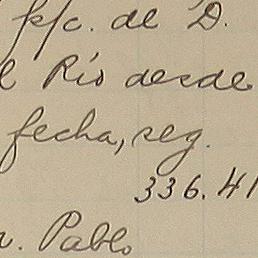 p/c. de D.
Río desde
fecha, seg.
336.41
Pablo